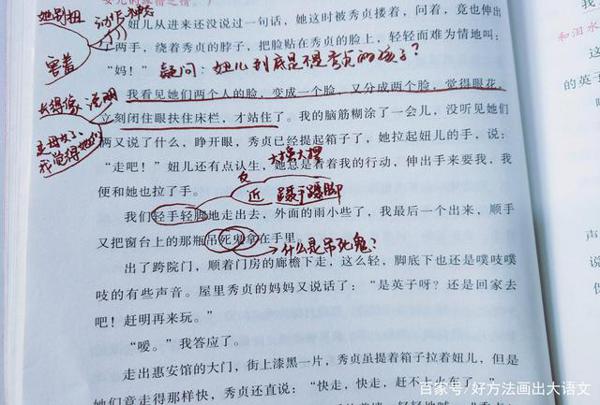 妞儿从进来还没说过一句话，她这时被秀贞搂着，问着，竟也伸出
两手，绕着秀贞的脖子，把脸贴在秀贞的脸上，轻轻而难为情地叫：
“妈！”
疑问：妞儿到底是不是秀贞的孩子？
我看见她们两个人的脸，变成一个脸，又分成两个脸，觉得眼花，
立刻闭住眼扶住床栏，才站住了。我的脑筋糊涂了一会儿，没听见她们
俩又说了什么，睁开眼，秀贞已经提起箱子了，她拉起妞儿的手，说：
“走吧！”妞儿还有点认生，她总是看着我的行动，伸出手来要我，我
便和她也拉了手。
大摇大摆
反
近
蹑手蹑脚
我们轻手轻脚地走出去，外面的雨小些了，我最后一个出来，顺手
又把窗台上的那瓶吊死鬼拿在手里。
什么是吊死鬼？
出了跨院门，顺着门房的廊檐下走，这么轻，脚底下也还是噗吱噗
吱的有些声音。屋里秀贞的妈妈又说话了：“是英子呀？还是回家去
吧！赶明再来玩。”
“嗳。”我答应了。
走出惠安馆的大门，街上漆黑一片，秀贞虽提着箱子拉着妞儿，但是
她们竟走得那样快，秀贞还直说：“快走，快走，赶不上火车了。”
动作
神态
害羞
长得像
说明
是母女了
我觉得她们
和泪水
的英子
声
百家号/好方法画出大语文